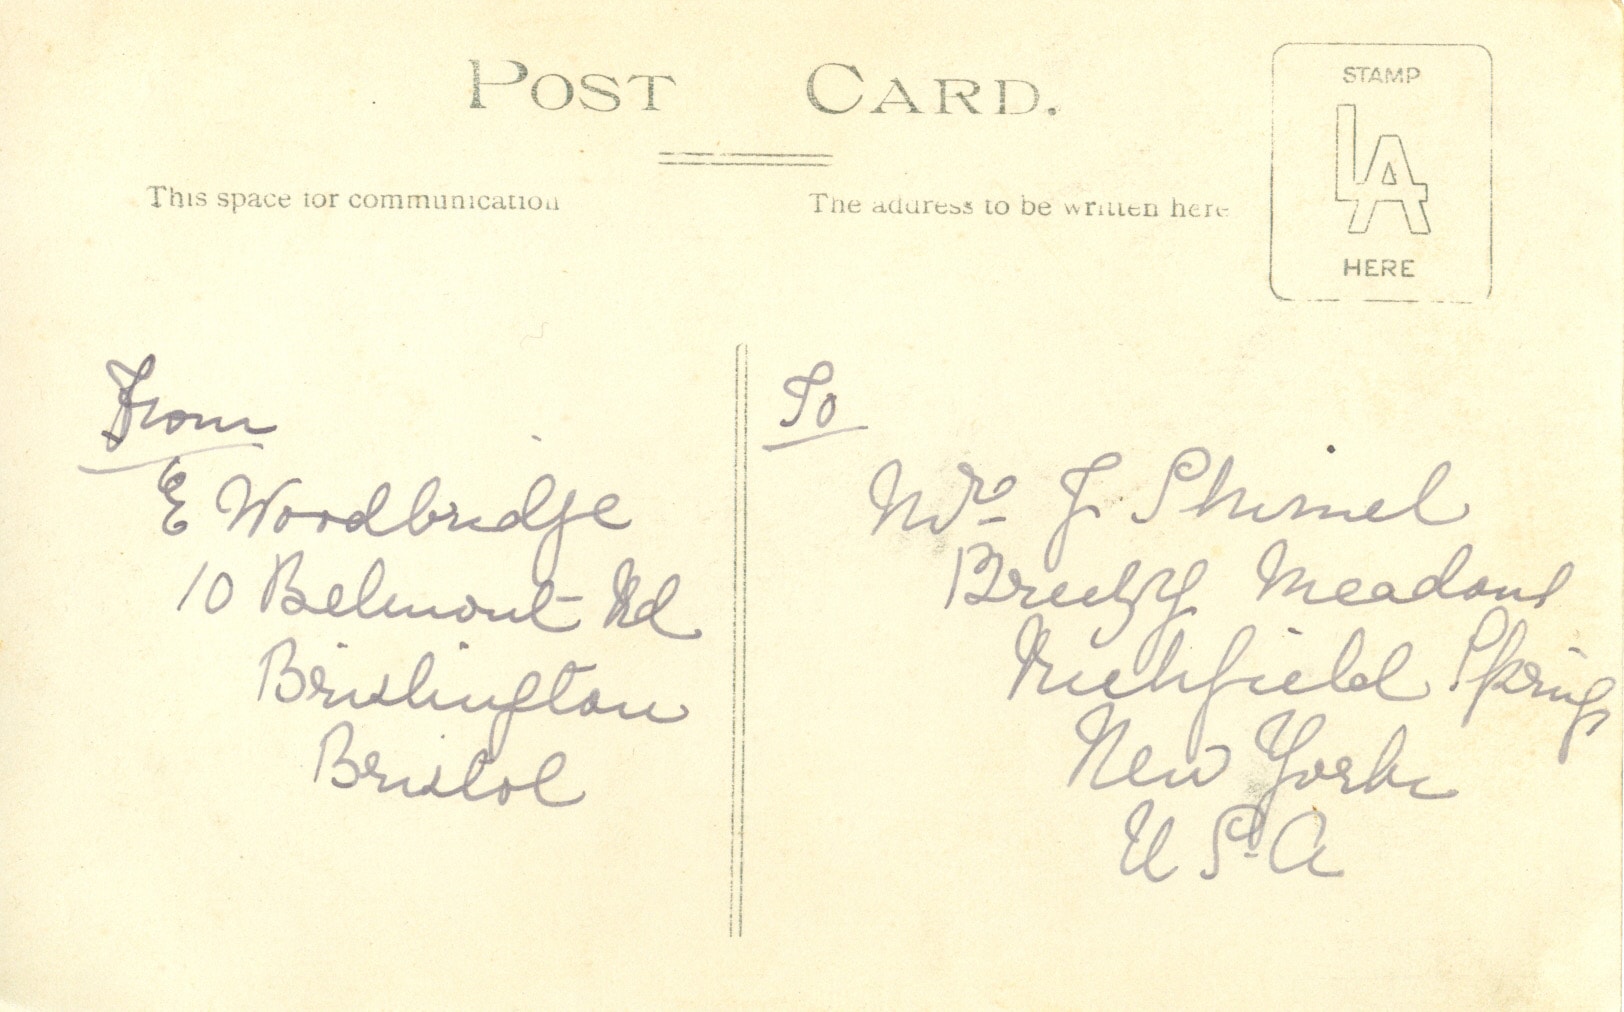 POST CARD.
This space for communication
The address to be written here
STAMP
LA
HERE
From
E Woodbridge
10 Belmont Rd
Brislington
Bristol
To
Mrs J
Breezy Meadows
Richfield Springs
New York
U S A